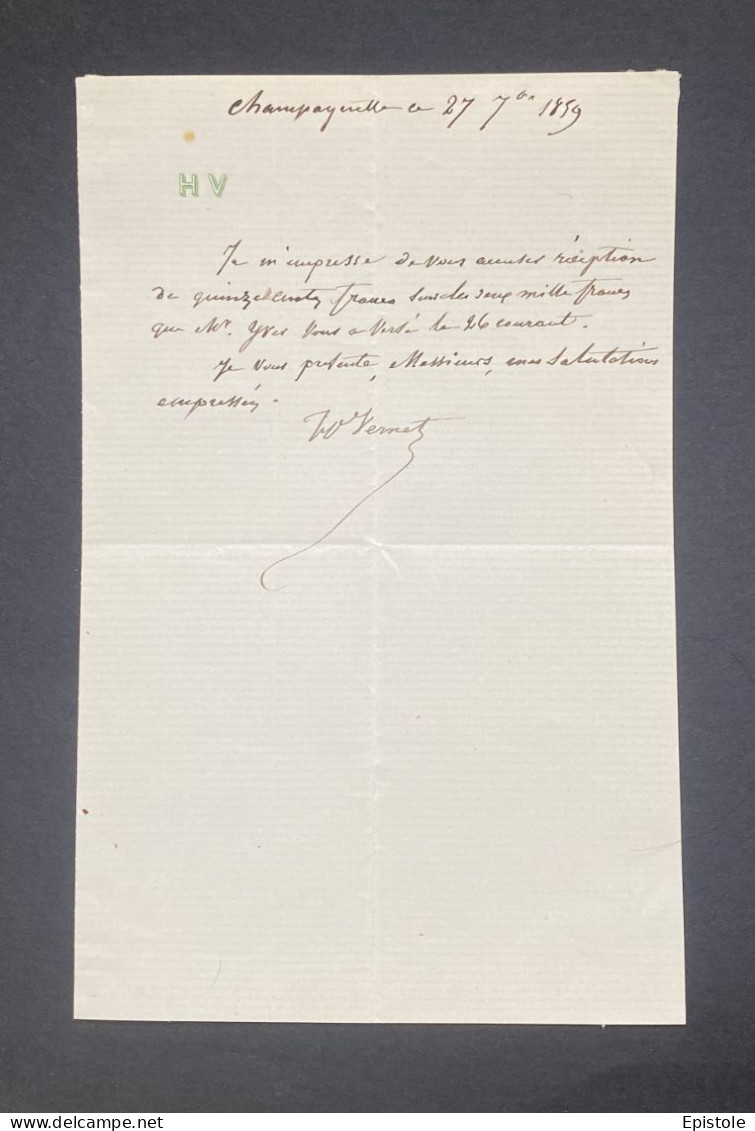 Champagnette ce 27 7bre 1859
HV
Je m'empresse de vous accuser réception
de quinze cents francs sur les deux mille francs
que Mr. Yves vous a versé le 26 courant.
Je vous présente, Messieurs, mes salutations
empressées.
Vernet
Epistole